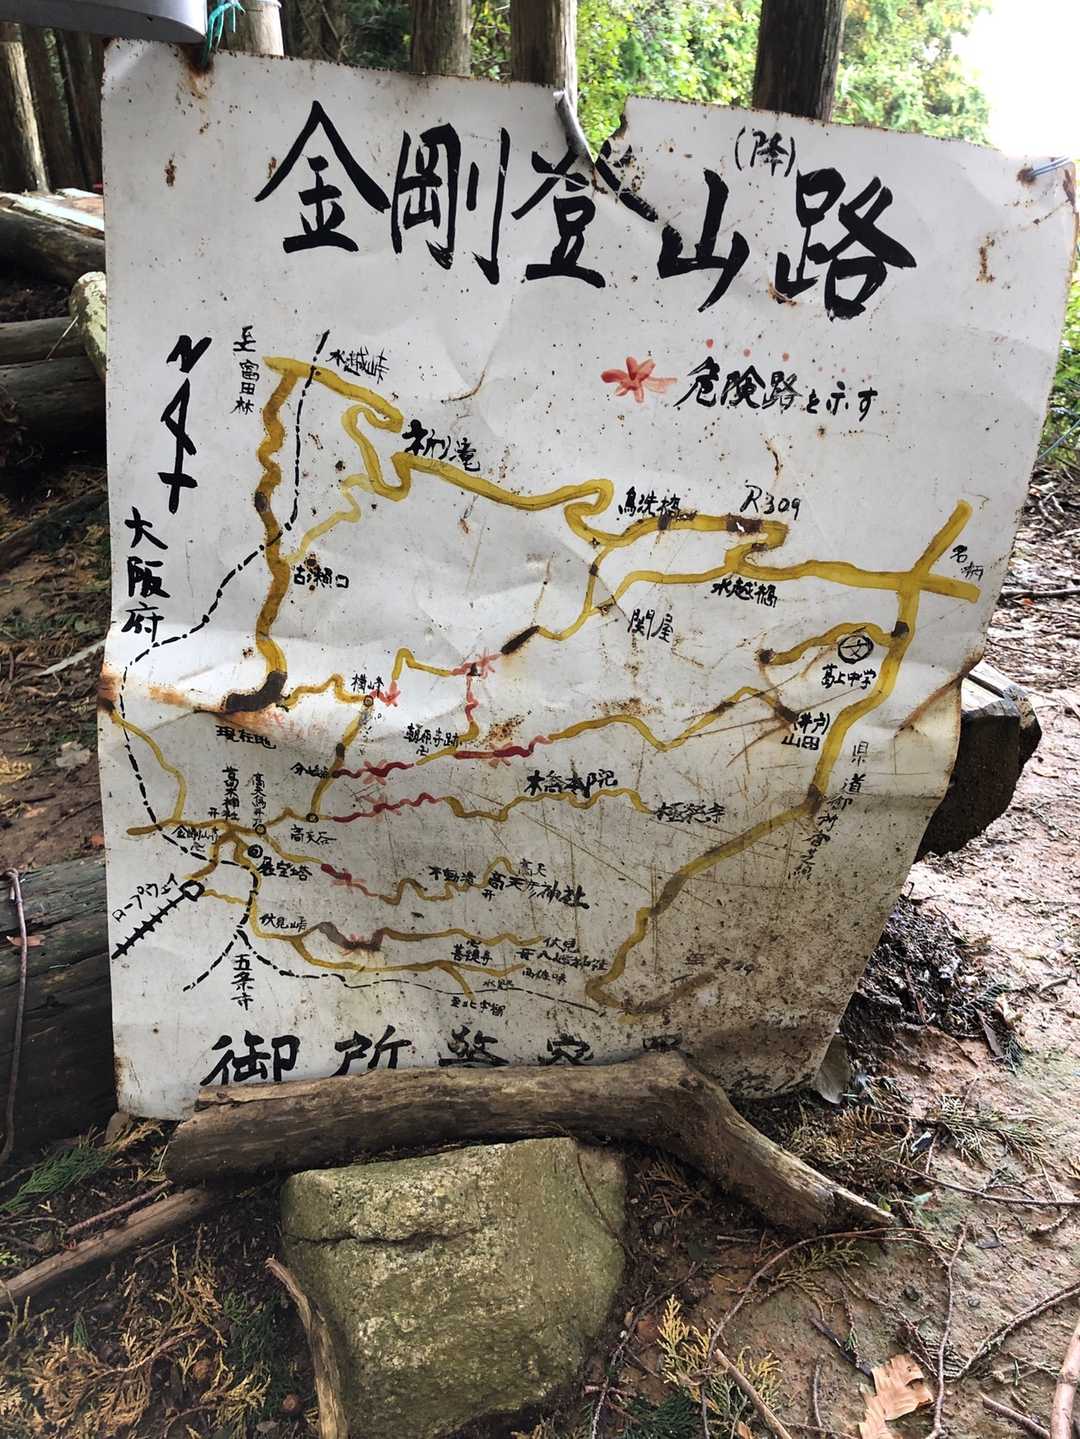 金剛登山路
(降)
N
至富田林
水越峠
危険路を示す
祈り滝
鳥洗橋
R309
名柄
大阪府
古瀬口
水越橋
関屋
葛上中学
横峠
現在地
朝原寺跡
(井戸)
山田
県道御所香芝線
葛木神社
高天谷
木橋本院
極楽寺
金剛山寺
展望塔
不動滝
高天
高天彦神社
ロープウェイ
伏見峠
菩提寺
伏見
八幡神社
高佐味
五条市
御所警察署